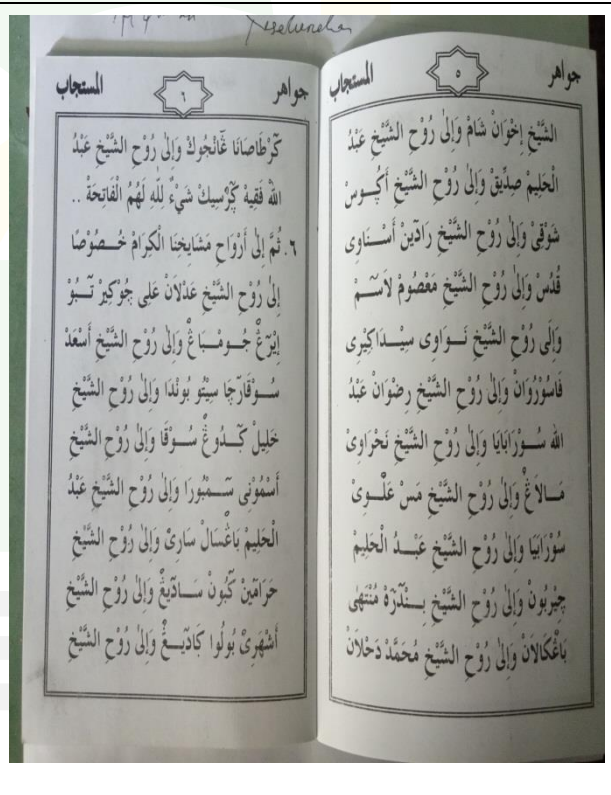 جواهر
٥
المستجاب
الشَّيْخِ إِخْوَانْ شَامْ وَإِلَىٰ رُوْحِ الشَّيْخِ عَبْدُ
الْحَلِيْمْ صِدِّيْقْ وَإِلَىٰ رُوْحِ الشَّيْخِ أَكُـــوسْ
شَوْقِىْ وَإِلَىٰ رُوْحِ الشَّيْخِ رَادَيْنْ أَسْـنَاوِى
قُدُسْ وَإِلَىٰ رُوْحِ الشَّيْخِ مَعْصُومْ لَاسَـــمْ
وَإِلَى رُوْحِ الشَّيْخِ نَـوَاوِى سِيْـدَاكِيْرِى
فَاسُوْرُوَانْ وَإِلَىٰ رُوْحِ الشَّيْخِ رِضْوَانْ عَبْدُ
الله سُـوْرَابَايَا وَإِلَىٰ رُوْحِ الشَّيْخِ نَحْرَاوِىْ
مَـالَاڠْ وَإِلَىٰ رُوْحِ الشَّيْخِ مَسْ عَلْـــوِىْ
سُوْرَابَيَا وَإِلَىٰ رُوْحِ الشَّيْخِ عَبْــدُ الْحَلِيْمْ
چِرْبُونْ وَإِلَىٰ رُوْحِ الشَّيْخِ بِـــنْدَّرَهْ مُنْتَهٰى
بَاڠْكَالَانْ وَإِلَىٰ رُوْحِ الشَّيْخِ مُحَمَّدْ دَحْلَانْ
جواهر
٦
المستجاب
كَرْطَاصَانَا ڠَانْجُوكْ وَإِلَىٰ رُوْحِ الشَّيْخِ عَبْدُ
اللهْ فَقِيهْ كَرْسِيكْ شَيْءٌ لِلّٰهِ لَهُمُ الْفَاتِحَةْ ..
٦. ثُمَّ إِلَىٰ أَرْوَاحِ مَشَايِخِنَا الْكِرَامْ خُــصُوْصًا
إِلَىٰ رُوْحِ الشَّيْخِ عَدْلَانْ عَلِى چُوكِيْرْ تَــبُوْ
اِيْرَڠْ جُــومْــبَاڠْ وَإِلَىٰ رُوْحِ الشَّيْخِ أَسْعَدْ
سُـــوْقَارَجَا سِيْتُو بُوْنْدَا وَإِلَىٰ رُوْحِ الشَّيْخِ
خَلِيلْ كَـــدُوڠْ سُـــوْقَا وَإِلَىٰ رُوْحِ الشَّيْخِ
أَسْمُوْنِى سَـــمْبُورَا وَإِلَىٰ رُوْحِ الشَّيْخِ عَبْدُ
الْحَلِيْمْ بَاڠْسَالْ سَارِىْ وَإِلَىٰ رُوْحِ الشَّيْخِ
حَرَامَيْنْ كَبُونْ سَـــادَيْڠْ وَإِلَىٰ رُوْحِ الشَّيْخِ
أَشْهَرِىْ بُولُوا كَادَيْــڠْ وَإِلَىٰ رُوْحِ الشَّيْخِ